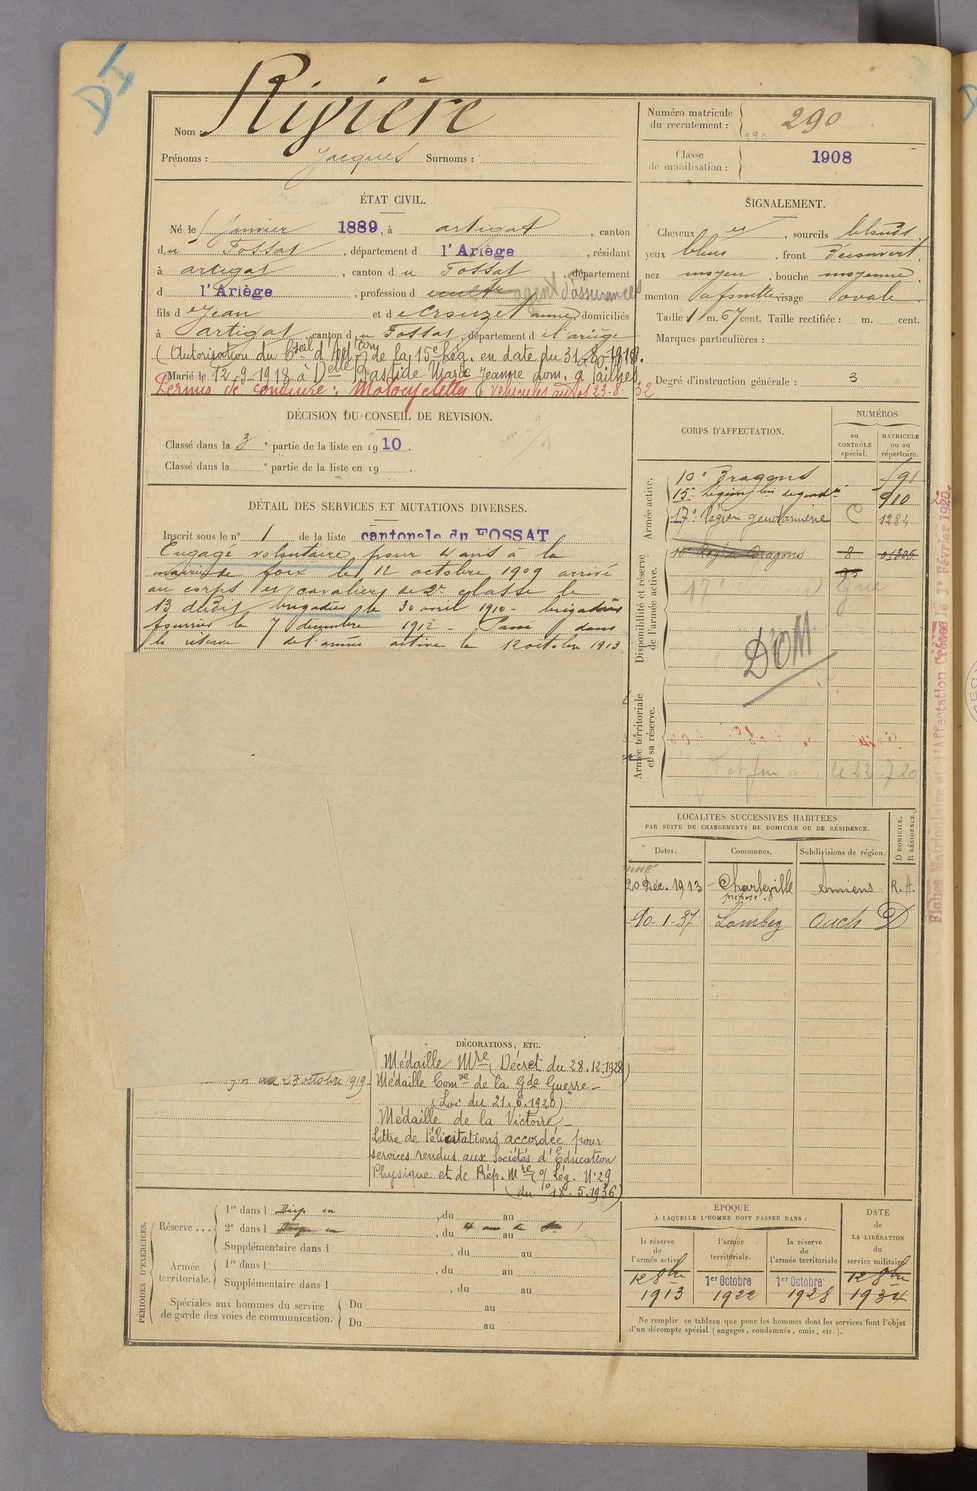 DI
Nom : Rivière
Prénoms : Jacques Surnoms :
Numéro matricule du recrutement : 290
290
Classe de mobilisation : 1908
ÉTAT CIVIL.
Né le janvier 1889, à artigat, canton
du Fossat, département d l'Ariège, résidant
à artigat, canton du Fossat, département
d l'Ariège, profession d agent d'assurances
fils de Jean et de Crouzet anne, domiciliés
à artigat, canton du Fossat, département de l'ariège
(Autorisation du Cseil d'Ad de la 15e Lég. en date du 31-8-1918.
Marié le 12-9-1918 à Delle Bastide Marie Jeanne dom. à Pailhès
Permis de conduire : Motocyclettes & véhicules autos 23-8-32
SIGNALEMENT.
Cheveux et, sourcils blonds
yeux bleus, front Découvert
nez moyen, bouche moyenne
menton à fossette visage ovale
Taille 1 m. 67 cent. Taille rectifiée : m. cent.
Marques particulières :
Degré d'instruction générale : 3
DÉCISION DU CONSEIL DE REVISION.
Classé dans la 3e partie de la liste en 1910.
Classé dans la e partie de la liste en 19 .
DÉTAIL DES SERVICES ET MUTATIONS DIVERSES.
Inscrit sous le n° 1 de la liste cantonale du FOSSAT
Engagé volontaire pour 4 ans à la
mairie de foix le 12 octobre 1909 arrivé
au corps et cavalier de 2e classe le
13 dudit brigadier le 30 avril 1910 - brigadier
fourrier le 7 décembre 1912 - Passé dans
la réserve de l'armée active le 12 octobre 1913
23 octobre 1919
CORPS D'AFFECTATION.
NUMÉROS
au CONTRÔLE spécial.
MATRICULE ou au répertoire.
Armée active.
10e Dragons 91
15e Légion 910
17e Légion gendarmerie C 1284
10e Rég. de Dragons 8
Disponibilité et réserve de l'armée active.
DOM
Armée territoriale et sa réserve.
Fiches Matriculaire et d'Affectation Créées le 1er Février 1920.
LOCALITÉS SUCCESSIVES HABITÉES
PAR SUITE DE CHANGEMENTS DE DOMICILE OU DE RÉSIDENCE.
Dates. Communes. Subdivisions de région. D DOMICILE. R RÉSIDENCE.
20 Déc. 1913 Charleville Amiens R.A.
10-1-37 Lombez Auch D
DÉCORATIONS, ETC.
Médaille Mre (Décret du 28.12.1928)
Médaille Comve de la Gde Guerre -
(Loi du 21.6.1920)
Médaille de la Victoire -
Lettre de félicitations accordée pour
services rendus aux Sociétés d'Éducation
Physique et de Prép. Mre (o/ Lég. N° 29
du 18.5.1936)
PÉRIODES D'EXERCICES.
Réserve ... 1re dans l , du au
2e dans l , du au
Supplémentaire dans l , du au
Armée territoriale. 1re dans l , du au
Supplémentaire dans l , du au
Spéciales aux hommes du service de garde des voies de communication. Du au
Du au
ÉPOQUE
À LAQUELLE L'HOMME DOIT PASSER DANS :
la réserve de l'armée active
l'armée territoriale.
la réserve de l'armée territoriale
DATE de LA LIBÉRATION du service militaire
12 8bre 1913
1er Octobre 1922
1er Octobre 1928
12 8bre 1934
Ne remplir ce tableau que pour les hommes dont les services font l'objet
d'un décompte spécial (engagés, condamnés, omis, etc.).